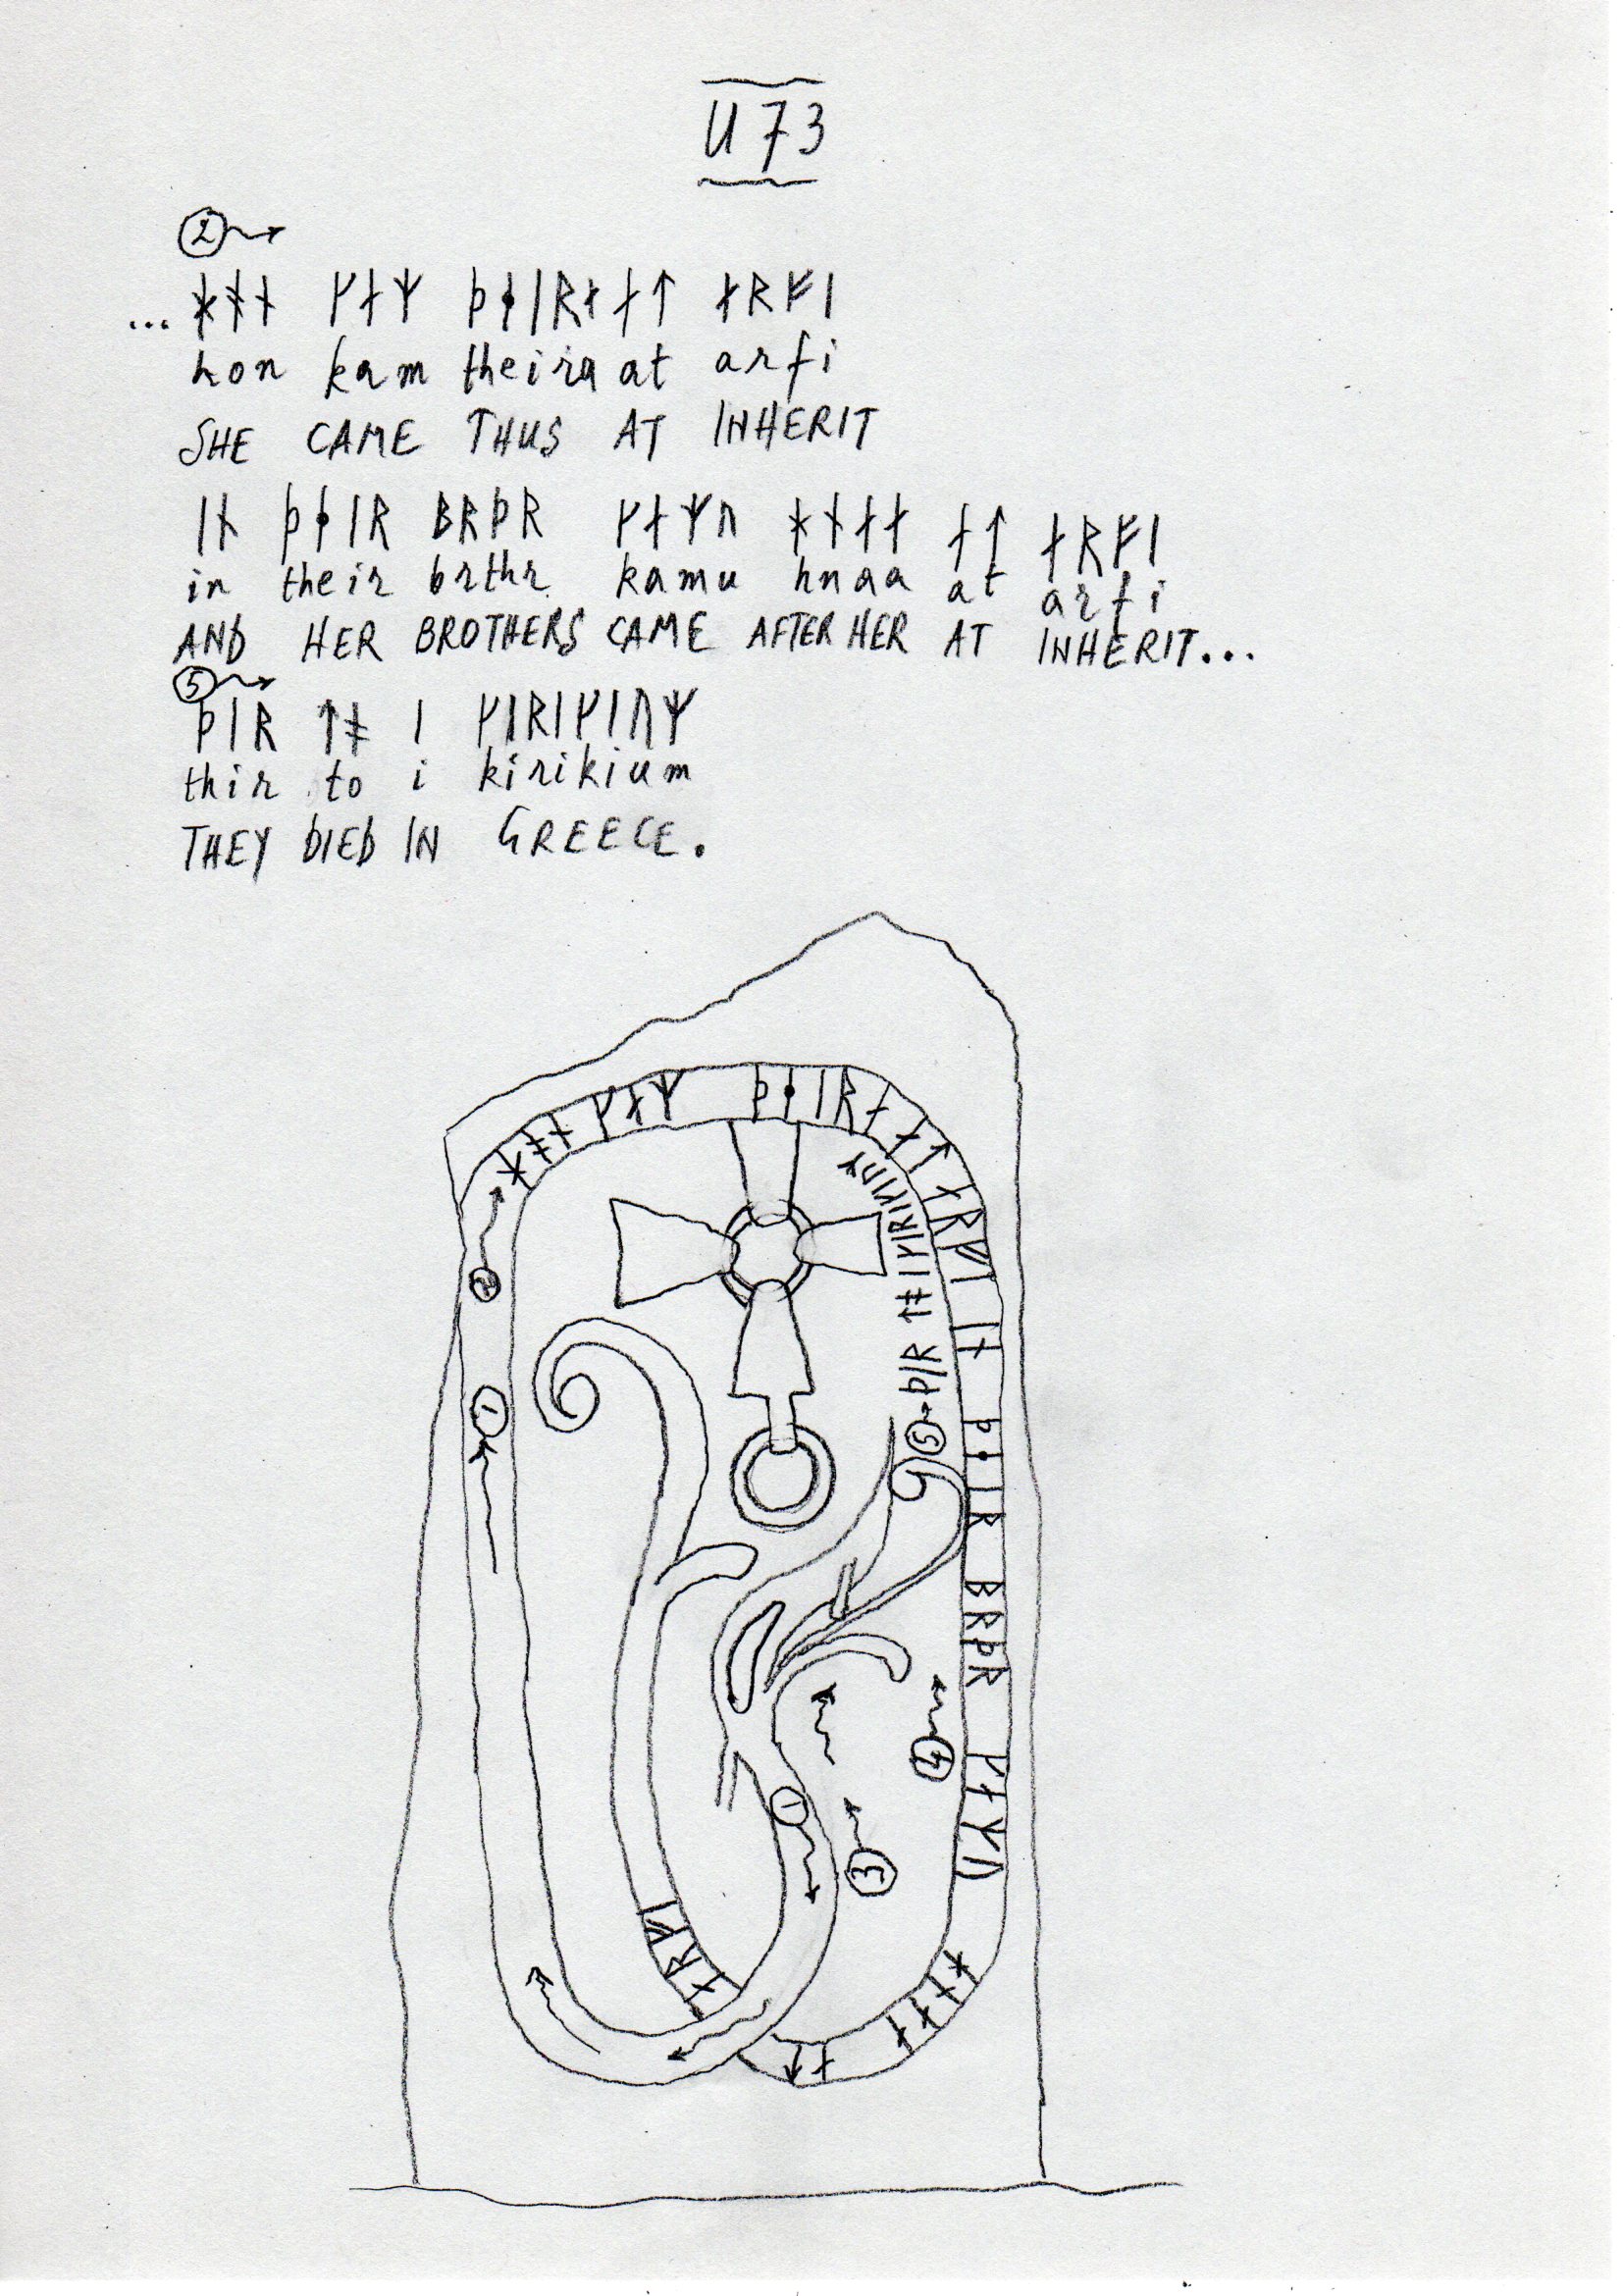 U 73
②
... ᚼᚬᚾ ᚴᛅᛘ ᚦᛂᛁᚱᛅ ᛅᛏ ᛅᚱᚠᛁ
hon kam theira at arfi
SHE CAME THUS AT INHERIT
ᛁᚾ ᚦᛂᛁᚱ ᛒᚱᚦᚱ ᚴᛅᛘᚢ ᚼᚾᛅᛅ ᛅᛏ ᛅᚱᚠᛁ
in their brthr kamu hnaa at arfi
AND HER BROTHERS CAME AFTER HER AT INHERIT...
⑤
ᚦᛁᚱ ᛏᚬ ᛁ ᚴᛁᚱᛁᚴᛁᚢᛘ
thir to i kirikium
THEY DIED IN GREECE.
②
ᚼᚬᚾ ᚴᛅᛘ ᚦᛂᛁᚱᛅ ᛅᛏ ᛅᚱᚠᛁ ᛁᚾ ᚦᛂᛁᚱ ᛒᚱᚦᚱ ᚴᛅᛘᚢ ᚼᚾᛅᛅ ᛅᛏ
ᛅᚱᚠᛁ
⑤ ᚦᛁᚱ ᛏᚬ ᛁ ᚴᛁᚱᛁᚴᛁᚢᛘ
①
④
①
③